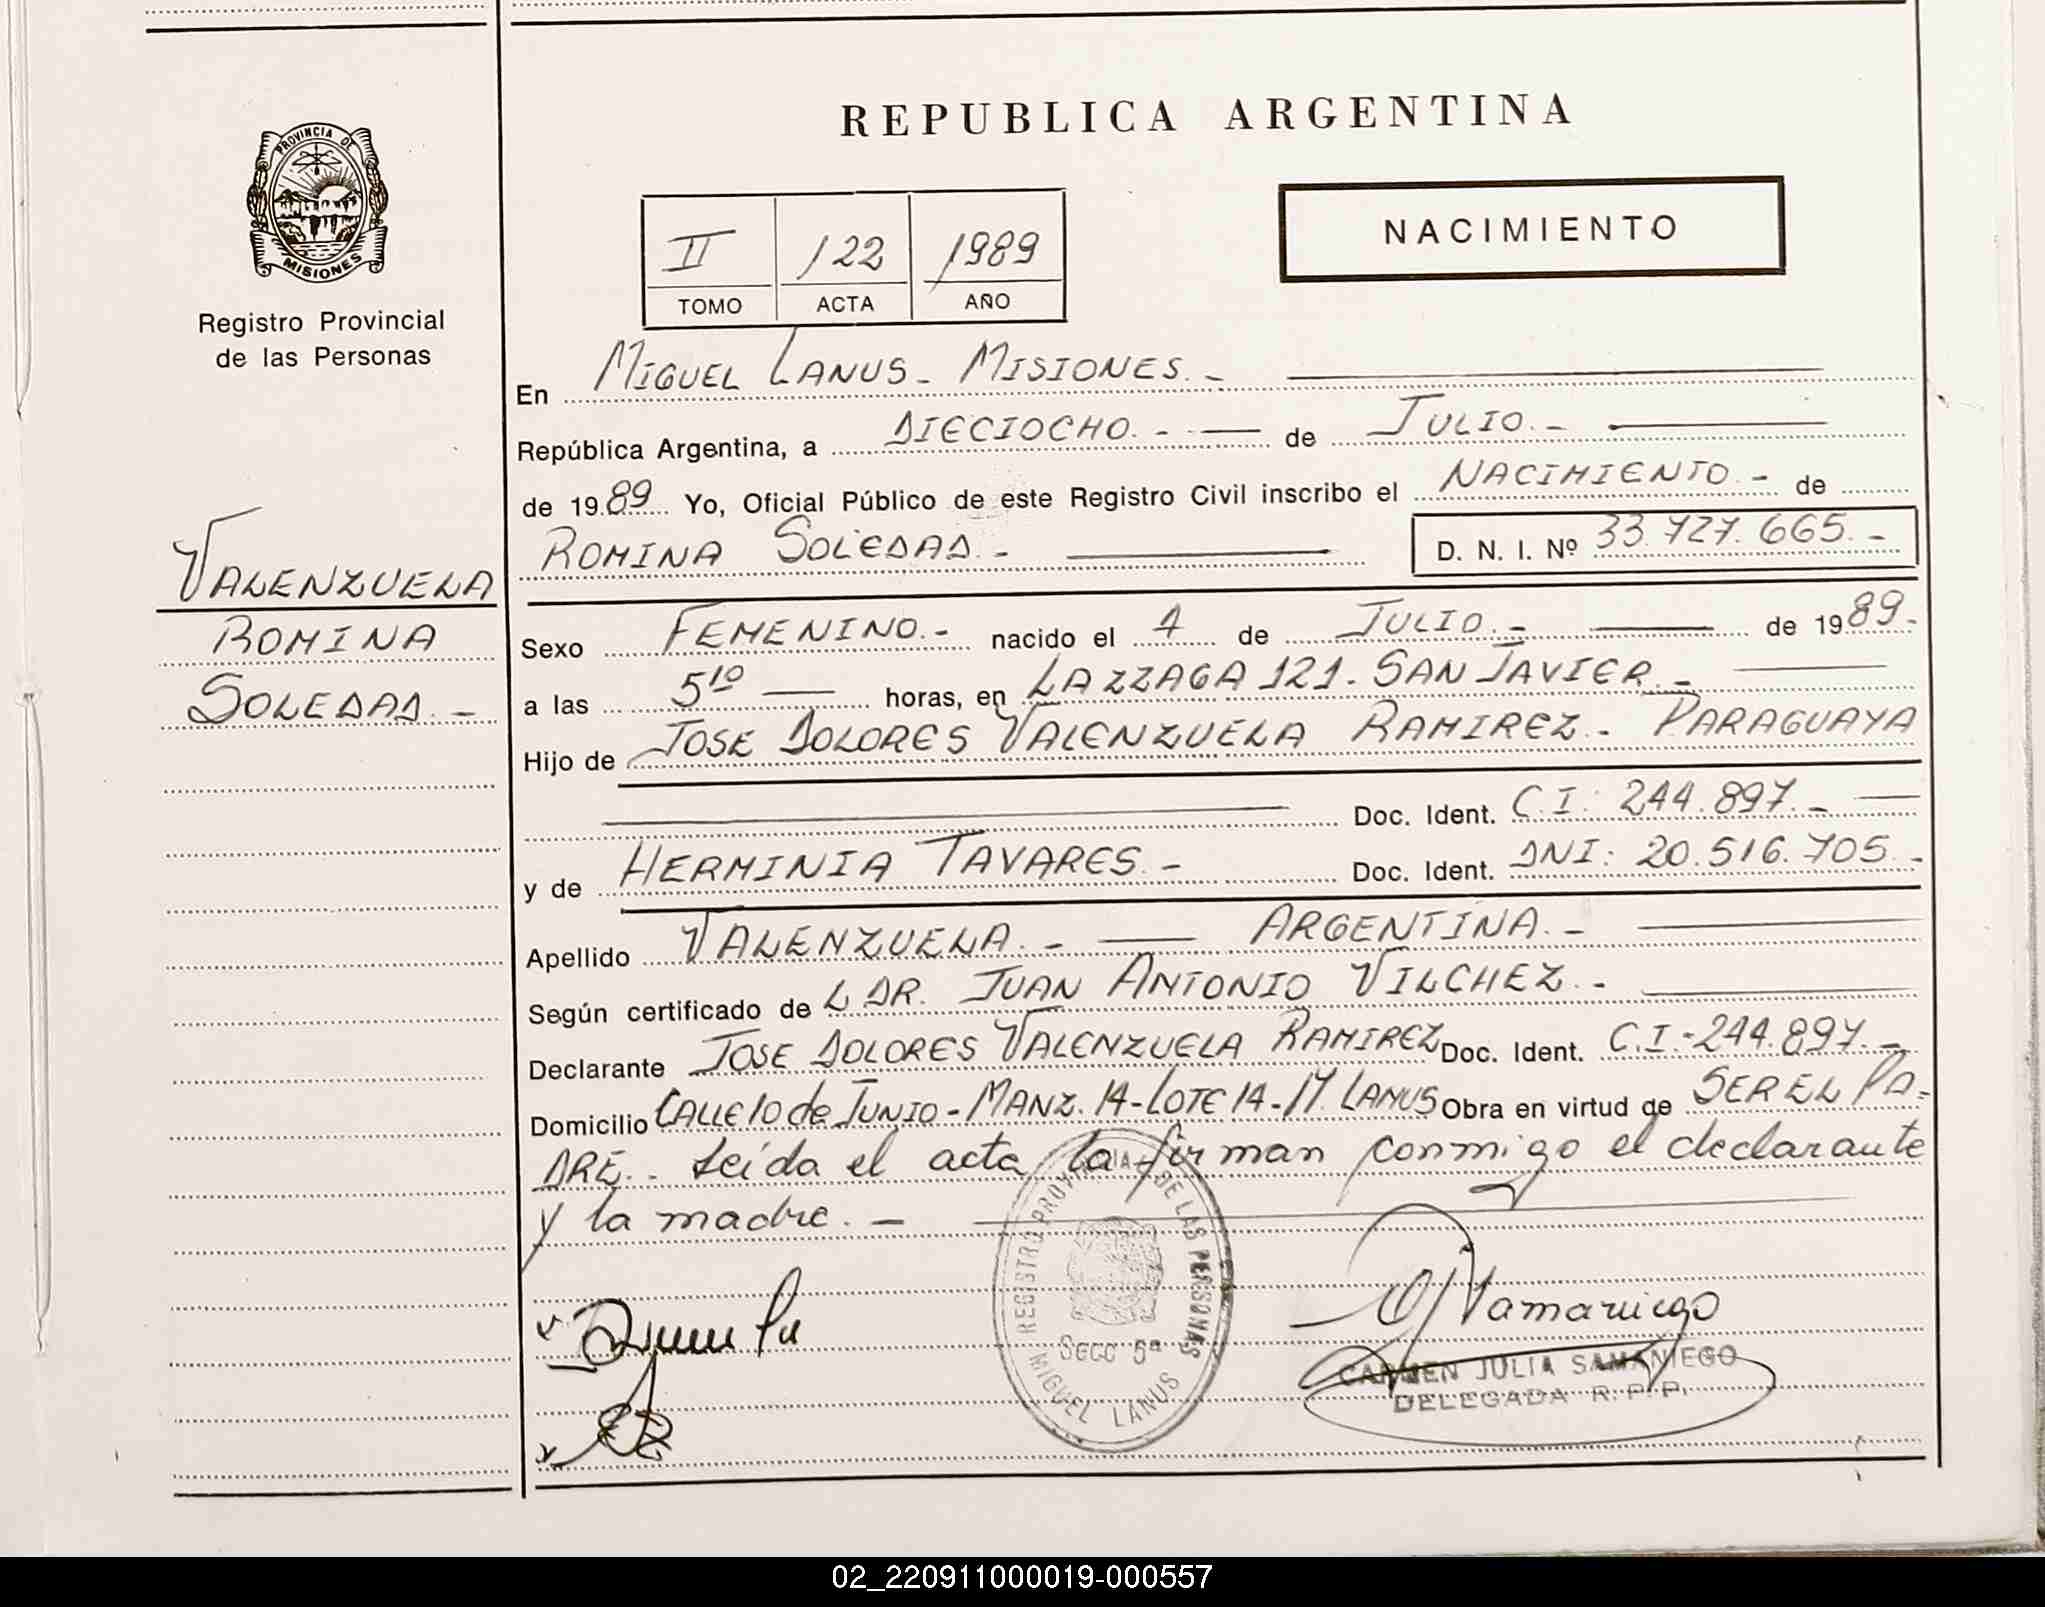 REPUBLICA ARGENTINA
PROVINCIA DE
MISIONES
Registro Provincial
de las Personas
II 122 1989
TOMO ACTA AÑO
NACIMIENTO
VALENZUELA
ROMINA
SOLEDAD.-
En MIGUEL LANUS - MISIONES.-
República Argentina, a DIECIOCHO.- de JULIO.-
de 1989 Yo, Oficial Público de este Registro Civil inscribo el NACIMIENTO.- de
ROMINA SOLEDAD.- D. N. I. Nº 33.727.665.-
Sexo FEMENINO.- nacido el 4 de JULIO.- de 1989.-
a las 5¹⁰ horas, en LAZZAGA 121. SAN JAVIER.-
Hijo de JOSE DOLORES VALENZUELA RAMIREZ.- PARAGUAYA
Doc. Ident. C.I: 244.897.-
y de HERMINIA TAVARES.- Doc. Ident. DNI: 20.516.705.-
Apellido VALENZUELA.- ARGENTINA.-
Según certificado de L DR. JUAN ANTONIO VILCHEZ.-
Declarante JOSE DOLORES VALENZUELA RAMIREZ Doc. Ident. C.I.-244.897.-
Domicilio CALLE 10 de JUNIO - MANZ. 14 - LOTE 14 - M. LANUS Obra en virtud de SER EL PA-
DRE.- Leída el acta la firman conmigo el declarante
y la madre.-
REGISTRO PROVINCIAL DE LAS PERSONAS
Secc 5ª
MIGUEL LANUS
CARMEN JULIA SAMANIEGO
DELEGADA R.P.P.
02_220911000019-000557